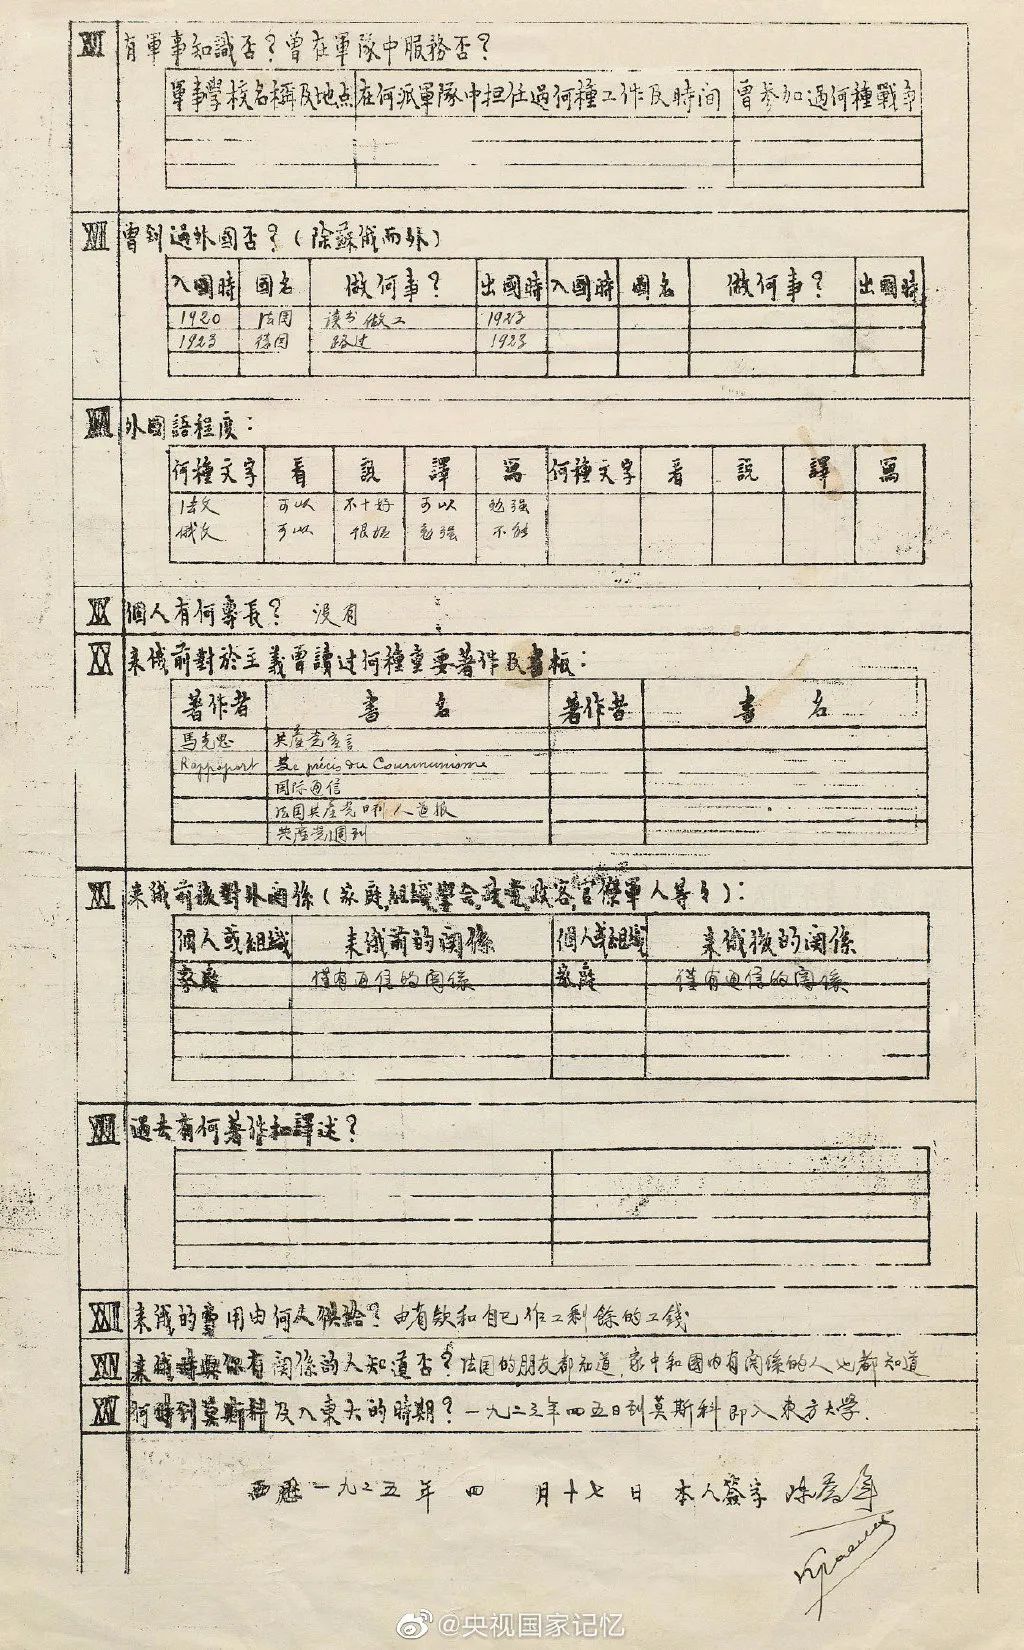 XVI 有軍事知識否？曾在軍隊中服務否？
軍事學校名稱及地点 在何派軍隊中担任過何種工作及時間 曾參加過何種戰爭
XVII 曾到過外國否？(除蘇俄而外)
入國時 國名 做何事？ 出國時 入國時 國名 做何事？ 出國時
1920 法国 读书做工 1923
1923 德国 路过 1923
XVIII 外國語程度：
何種文字 看 説 譯 寫 何種文字 看 説 譯 寫
法文 可以 不十好 可以 勉强
俄文 可以 很坏 勉强 不能
XIX 個人有何專長？ 没有
XX 来俄前對於主義曾讀过何種重要著作及書板：
著作者 書名 著作者 書名
馬克思 共產党宣言
Rappoport précis du Communisme
国际通信
法国共產党 人道报
共產党週刊
XXI 来俄前後對外関係(家庭,組織,學会,政党,政客,官僚軍人等々)：
個人或組織 来俄前的関係 個人或組織 来俄後的関係
家庭 僅有通信的関係 家庭 僅有通信的関係
XXII 過去有何著作和譯述？
XXIII 来俄的費用由何人供給？ 由有欵和自己作工剩餘的工錢
XXIV 来俄時與你有関係的人知道否？ 法国的朋友都知道,家中和國内有関係的人也都知道
XXV 何時到莫斯科及入東大的時期？ 一九二三年四五日到莫斯科即入東方大學.
西歷一九二五年 四 月十七日 本人簽字 陈喬年
@央视国家记忆